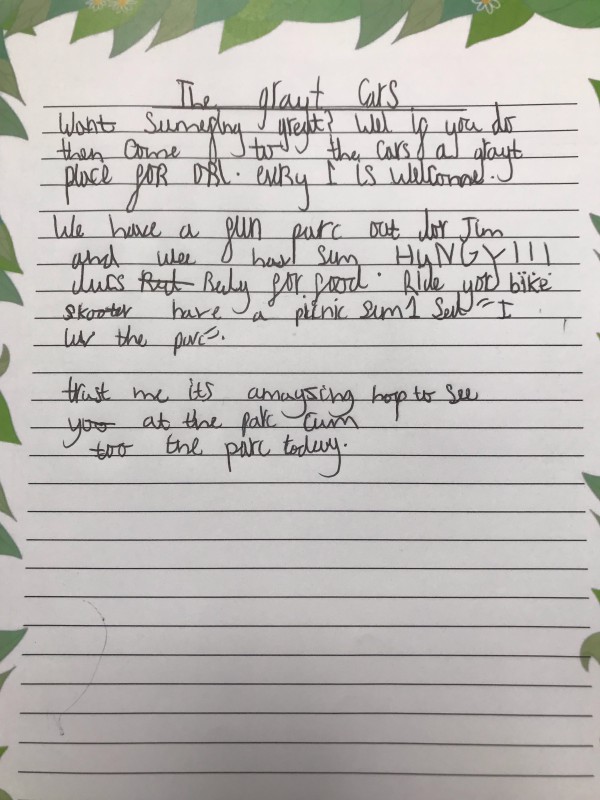 The grayt Cars
Want Sumefing greyt? Wel if you do
then Come to the Cars a grayt
place foR ORL. evRy 1 is welcome.
We have a fun parc out dor Jim
and wee hav Sum HuNGY!!!
ducs Redy for food. Ride yor bike
skooter have a picnic sum1 Sed "I
luv the parc".
trust me its amaysing hop to see
yoo at the parc Cum
too the parc today.